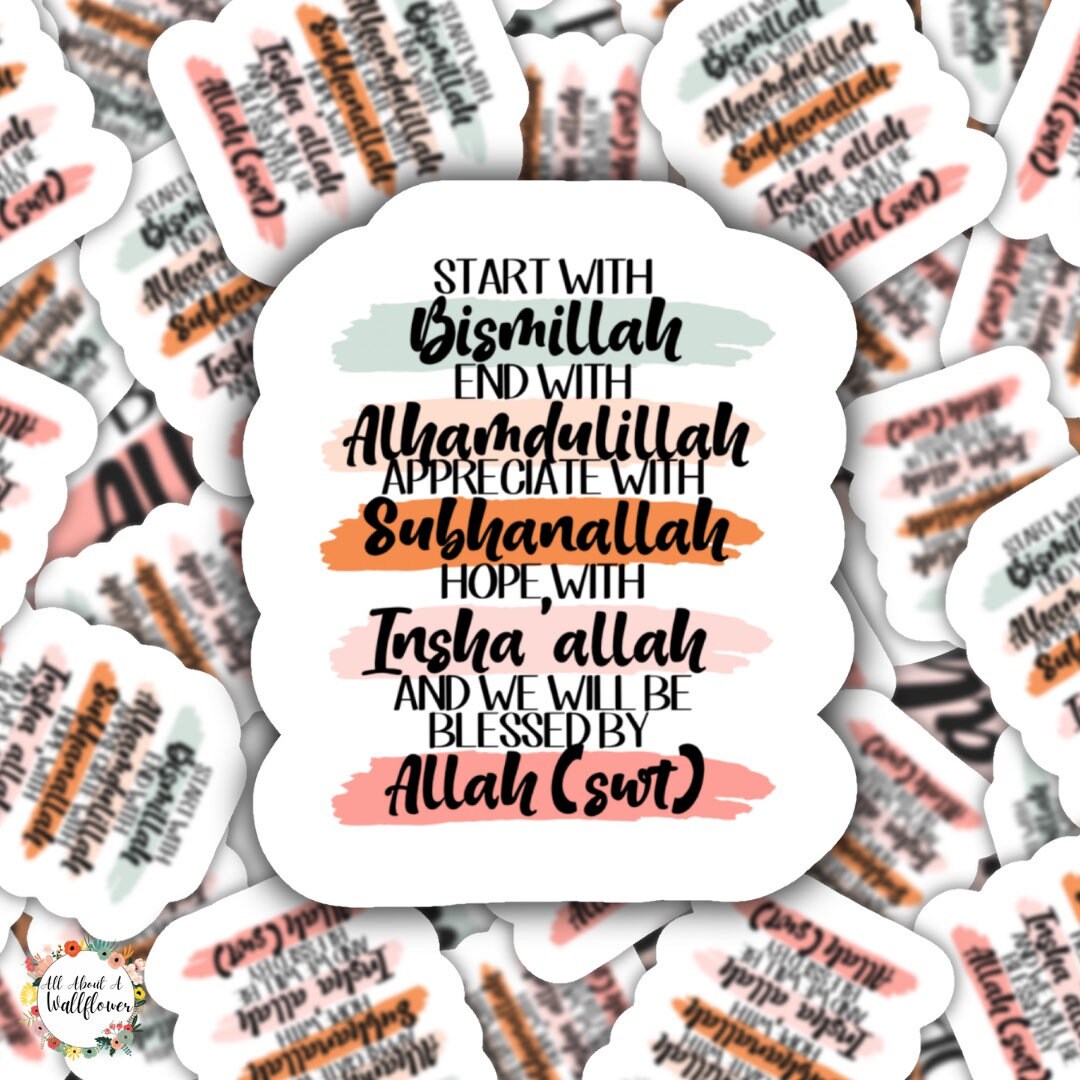 START WITH
Bismillah
END WITH
Alhamdulillah
APPRECIATE WITH
Subhanallah
HOPE, WITH
Insha'allah
AND WE WILL BE
BLESSED BY
Allah (swt)
All About A
Wallflower